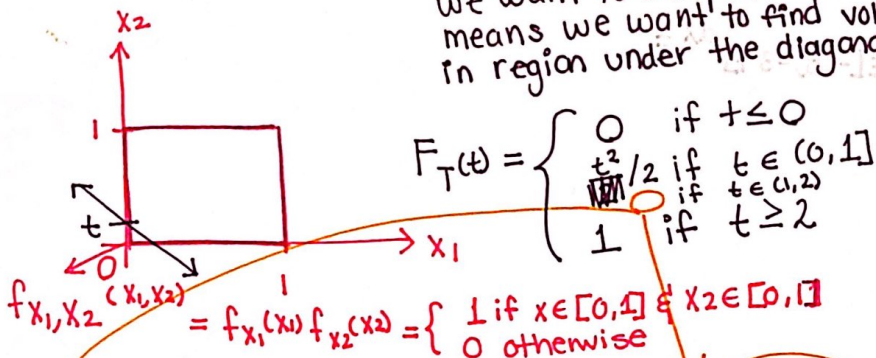 means we want to find vol
in region under the diagona
X2
1
t
0
1
X1
F_T(t) = { 0 if t ≤ 0
t²/2 if t ∈ (0,1]
if t ∈ (1,2)
1 if t ≥ 2
f_{X1,X2}(X1,X2) = f_{X1}(X1) f_{X2}(X2) = { 1 if x ∈ [0,1] & X2 ∈ [0,1]
0 otherwise